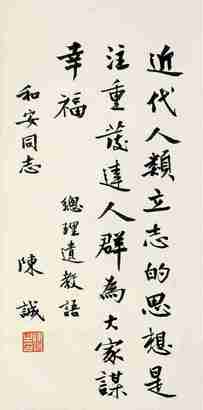 近代人類立志的思想是
注重發達人群為大家謀
幸福
總理遺教語
和安同志
陳誠